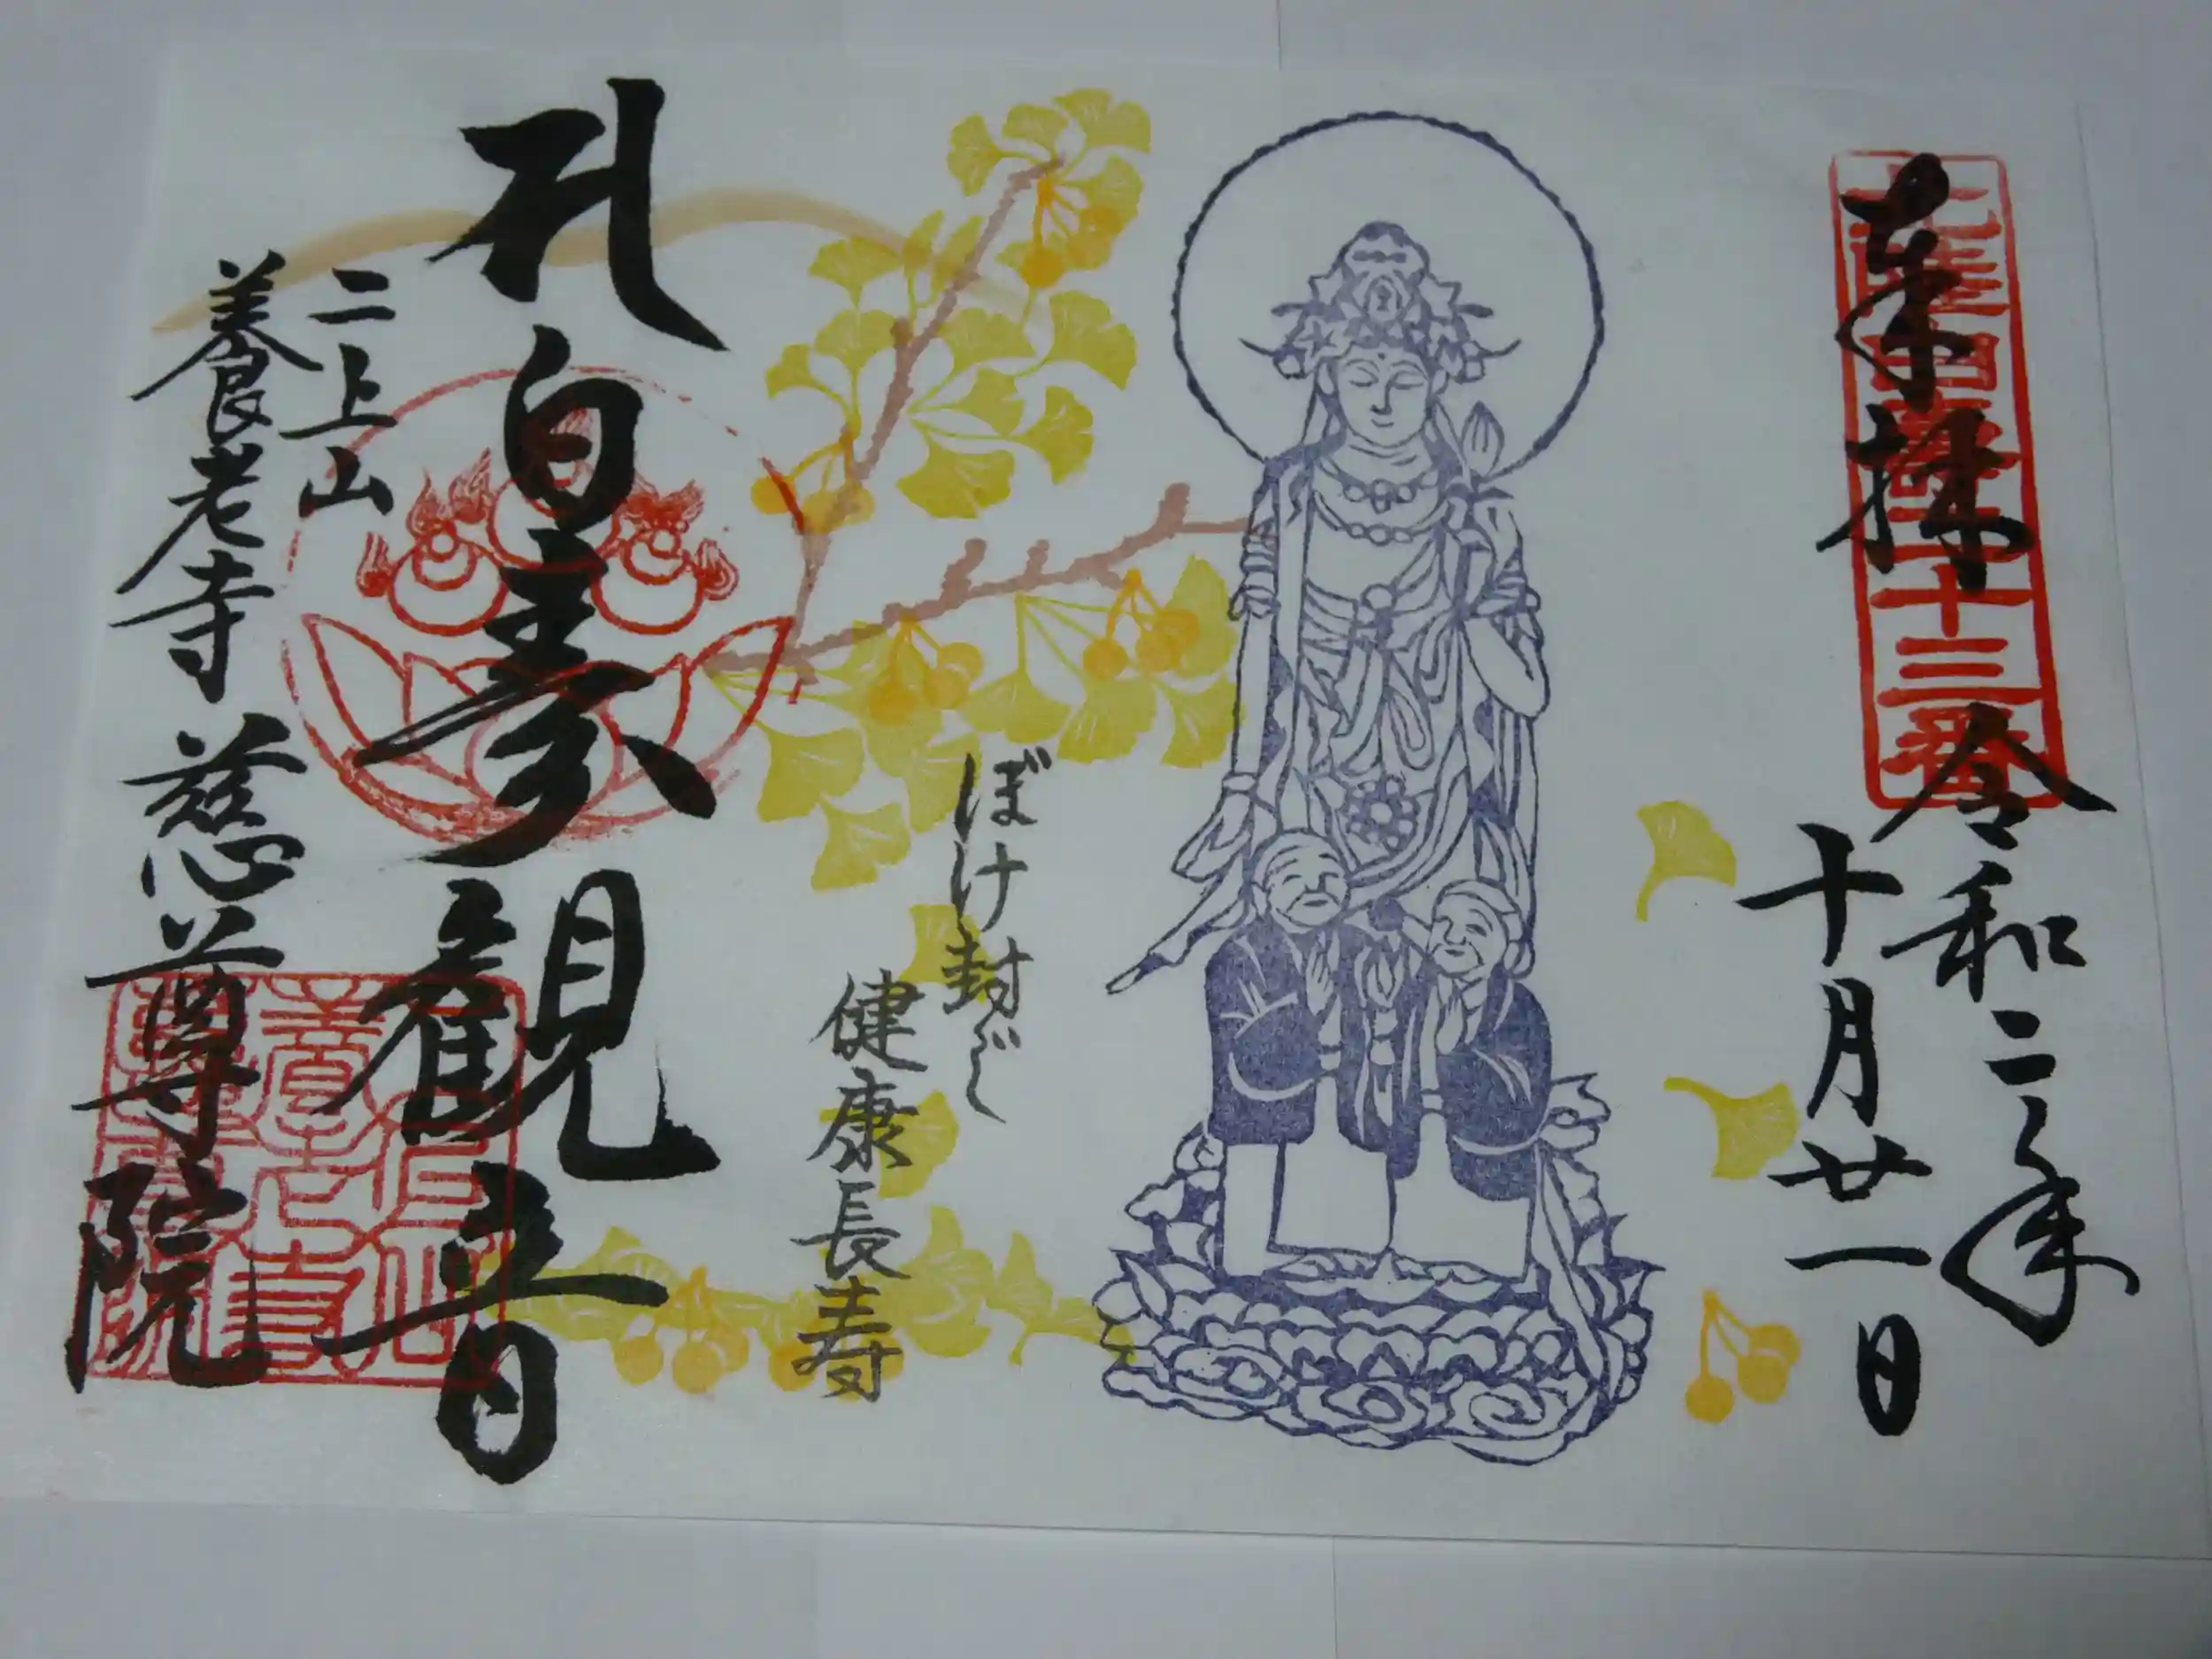 奉拝
十三番
令和二年
十月廿一日
ぼけ封じ
健康長寿
白寿観音
二上山
養老寺 慈尊院